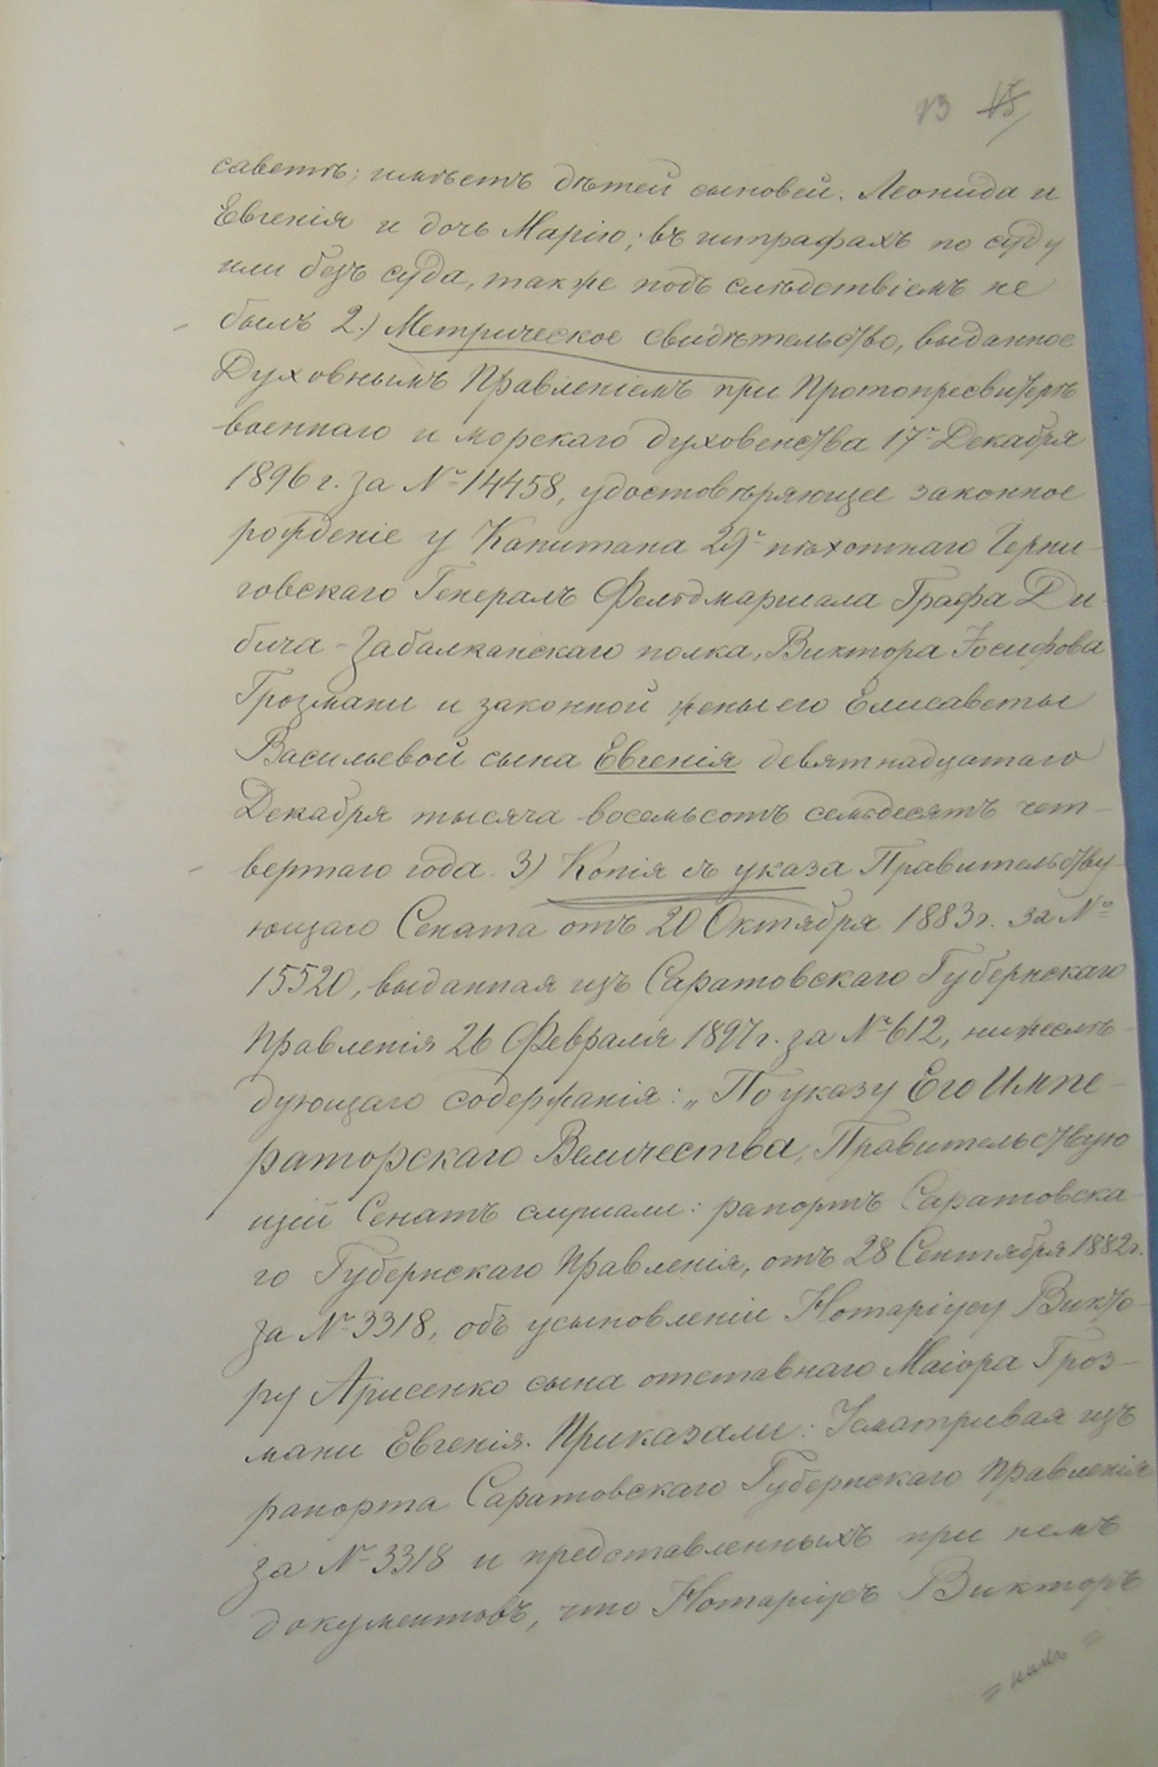 13 15
саветѣ; имѣетъ дѣтей сыновей: Леонида и
Евгенія и дочь Марію; въ штрафахъ по суду
или безъ суда, также подъ слѣдствіемъ не
былъ 2.) Метрическое свидѣтельство, выданное
Духовнымъ Правленіемъ при Протопресвитерѣ
военнаго и морскаго духовенства 17 Декабря
1896 г. за № 14458, удостовѣряющее законное
рожденіе у Капитана 29 пѣхотнаго Черни-
говскаго Генералъ Фельдмаршала Графа Ди-
бича-Забалканскаго полка, Виктора Іосифова
Грозмани и законной жены его Елисаветы
Васильевой сына Евгенія девятнадцатаго
Декабря тысяча восемьсотъ семьдесятъ чет-
вертаго года. 3) Копія съ указа Правительству-
ющаго Сената отъ 20 Октября 1883 г. за №
15520, выданная изъ Саратовскаго Губернскаго
Правленія 26 Февраля 1897 г. за № 612, нижеслѣ-
дующаго содержанія: „По указу Его Импе-
раторскаго Величества, Правительствую
щій Сенатъ слушали: рапортъ Саратовска-
го Губернскаго Правленія, отъ 28 Сентября 1882 г.
за № 3318, объ усыновленіи Нотаріусу Викто-
ру Арисенко сына отставнаго Маіора Гроз-
мани Евгенія. Приказали: Усматривая изъ
рапорта Саратовскаго Губернскаго Правленія
за № 3318 и представленныхъ при немъ
документовъ, что Нотаріусъ Викторъ